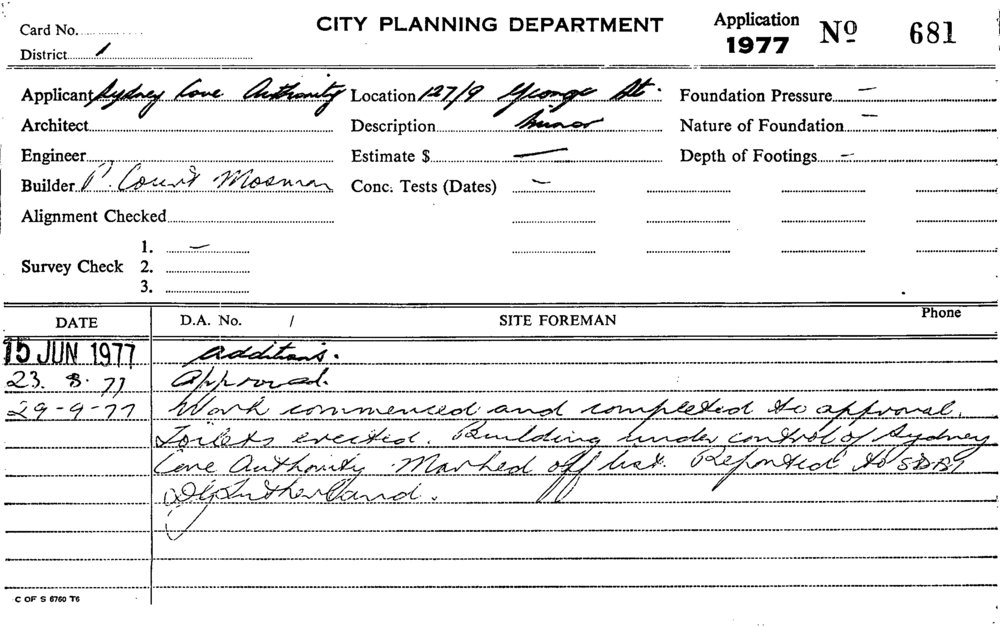 Card No.
CITY PLANNING DEPARTMENT
Application 1977 No 681
District 1
Applicant Sydney Cove Authority Location 127/9 George St. Foundation Pressure —
Architect Description Minor Nature of Foundation —
Engineer Estimate $ — Depth of Footings —
Builder P. Court Mosman Conc. Tests (Dates) —
Alignment Checked
Survey Check 1. —
2.
3.
DATE D.A. No. / SITE FOREMAN Phone
15 JUN 1977 Additions.
23. 8. 77 Approved.
29-9-77 Work commenced and completed to approval.
Toilets erected. Building under control of Sydney
Cove Authority. Marked off list. Reported to
Sutherland.
C OF S 6760 T6